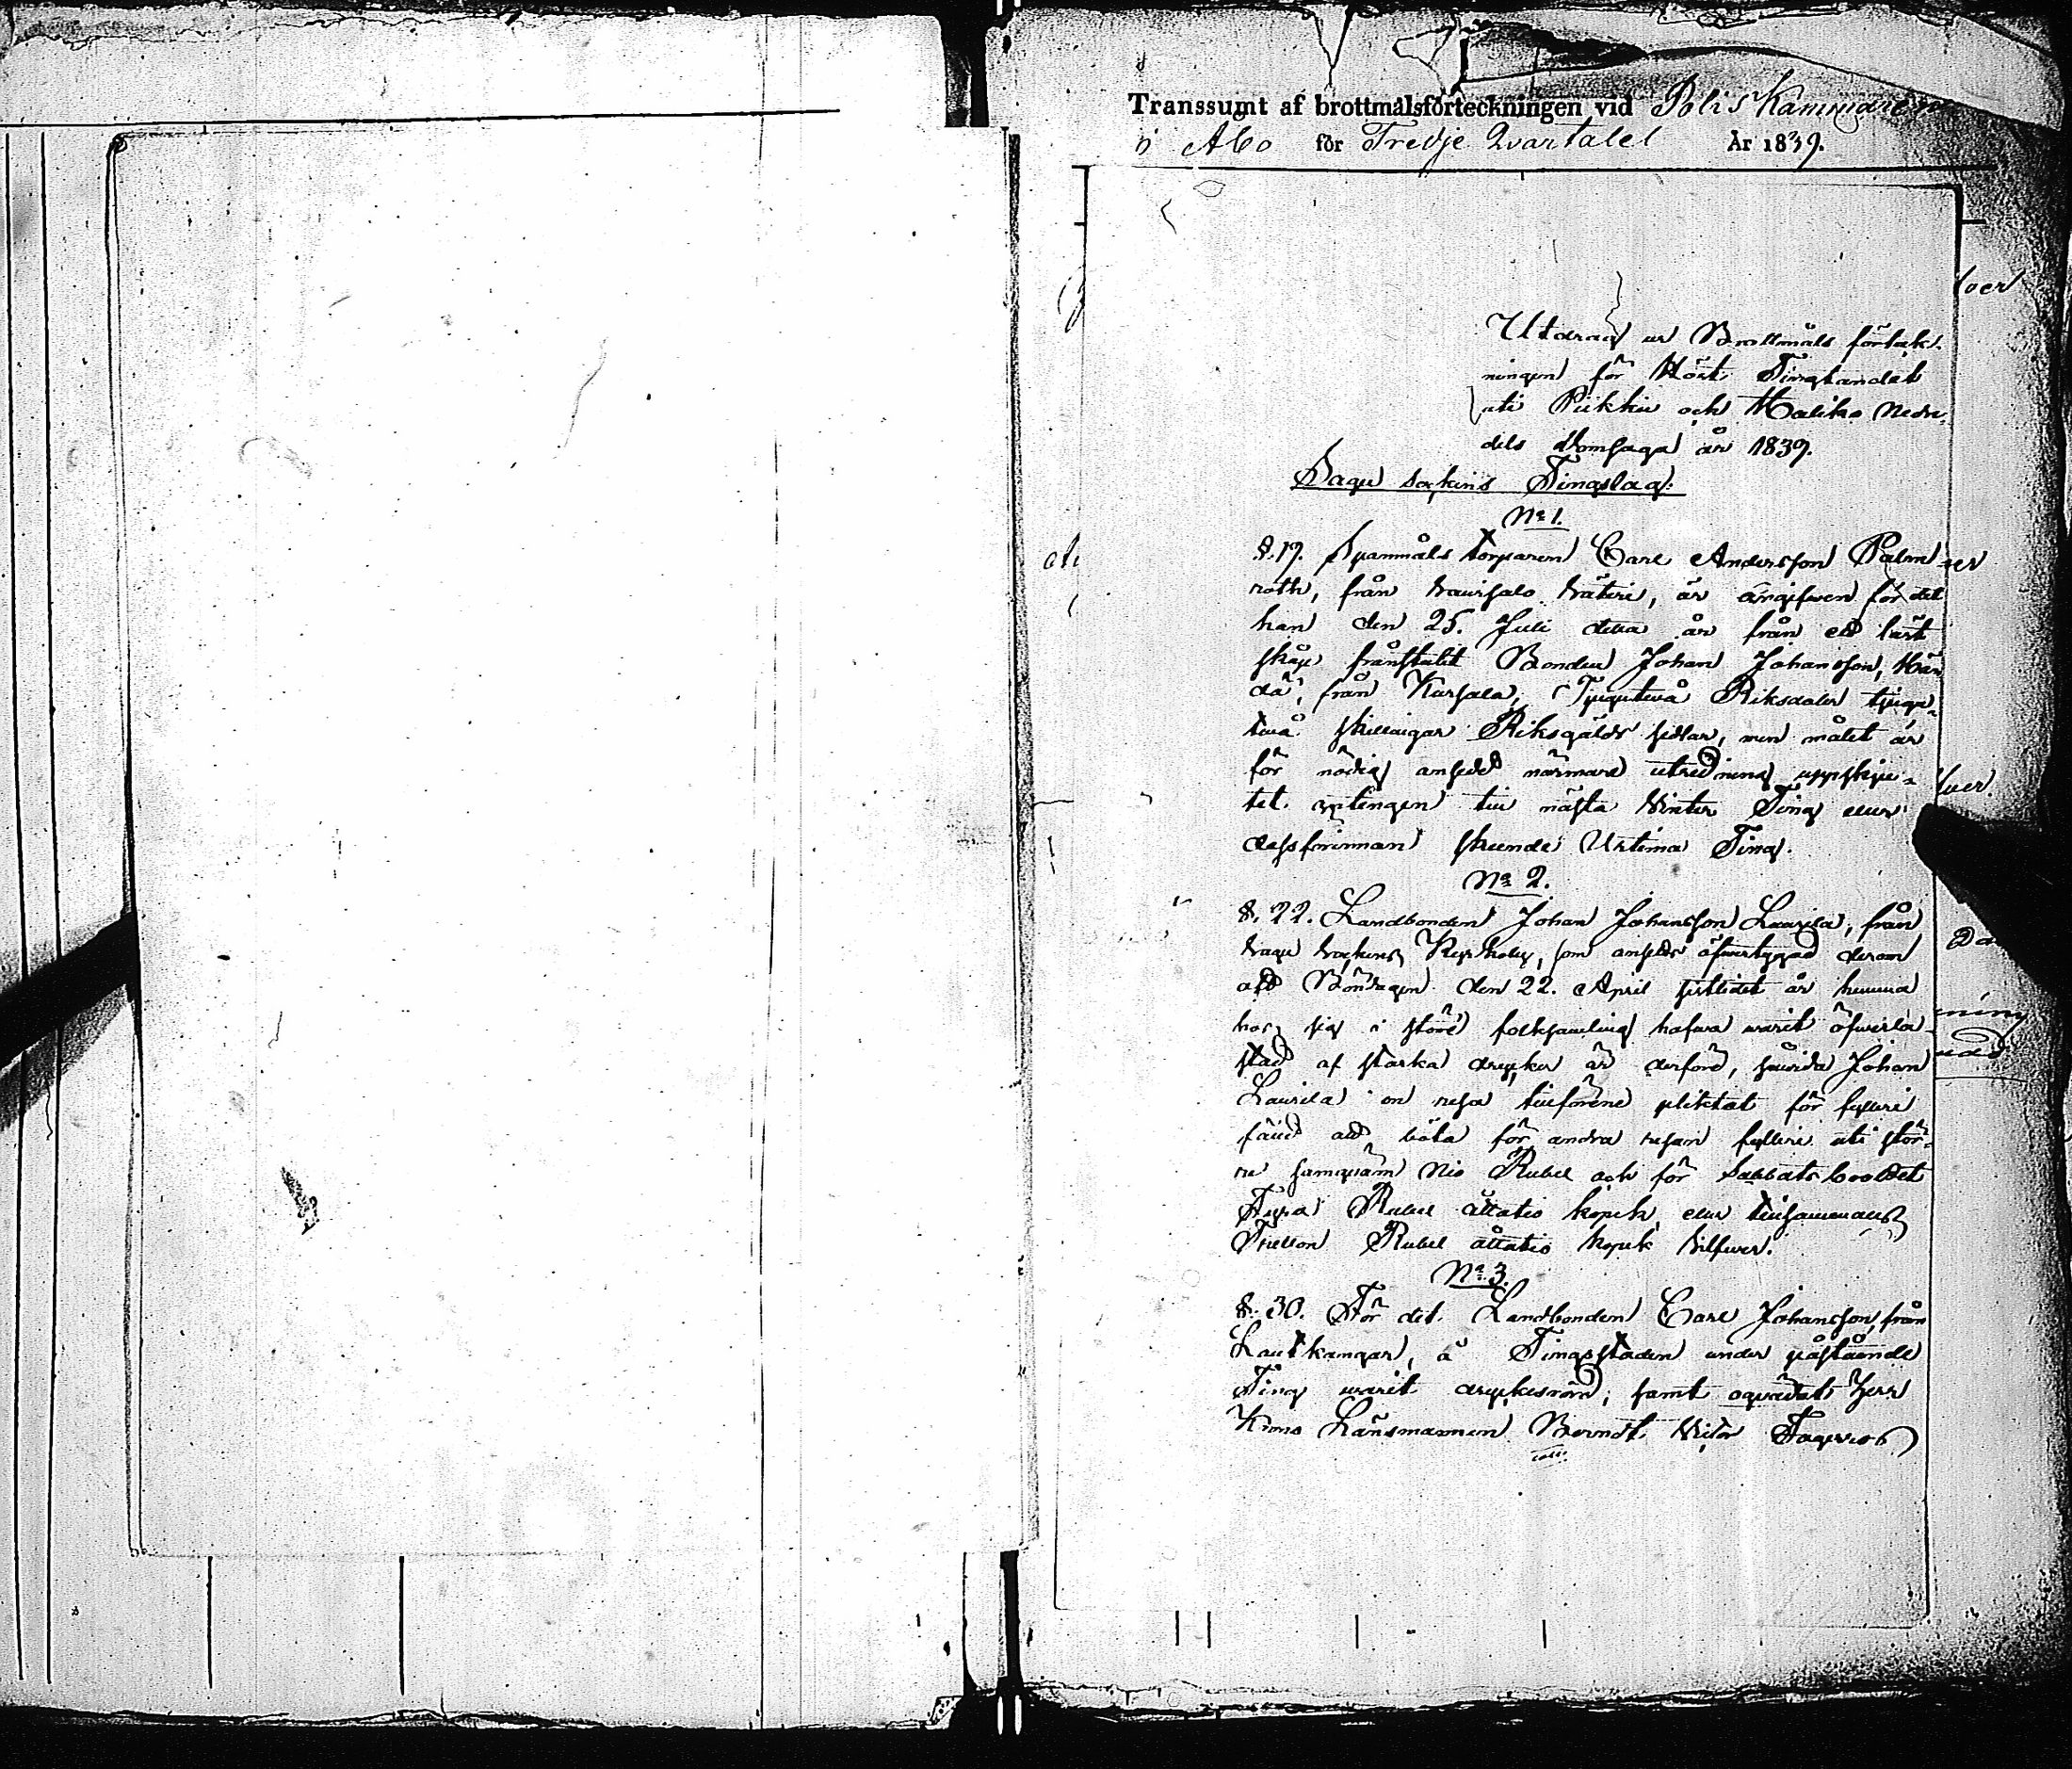 Transsumt af brottmålsförteckningen vid Polis Kammaren
i Åbo för Tredje Qvartalet År 1839.
Utdrag ur Brottmåls förtek-
ningen för Höst Tingtandet
uti Piikkie och Haliko Nedre
dels Domsaga år 1839.
Sagu sockens Tingslag:
No 1.
§. 19. Spannmåls torparen Carl Andersson Palm
roth, från säteri, är angifwen för det
han den 25. Juli detta år från ett låst
skåp frånstulit Bonden Johan Johansson,
från Karsala, Tjugutwå Riksdaler tjugu-
twå skillingar Riksgälds sedlar, men målet är
för nödig ansedd närmare utredning uppskju-
tet antingen till nästa Winter Ting eller
dessförinnan skeende Urtima Ting.
No 2.
§. 22. Landbonden Johan Johansson Laurila, från
Sagu Sockens som ansedd öfwertygad derom
att Söndagen den 22. April sistlidet år hemma
hos sig i större folksamling hafwa warit öfwerla-
stad af starka drycker är derföre, sedan Johan
Laurila en resa tillförene pliktat för fylleri
fäld att böta för andra resan fylleri uti stör-
re samqväm Nio Rubel och för Sabbatsbrottet
Fyra Rubel åttatio kopek, eller tillsammans
Tretton Rubel åttatio kopek Silfwer.
No 3.
§. 30. För det Landbonden Carl Johansson, från
Lautkangar, å Tingsstaden under påstående
Ting warit drucken, samt oqvädat Herr
Krono Länsmannen Berndt